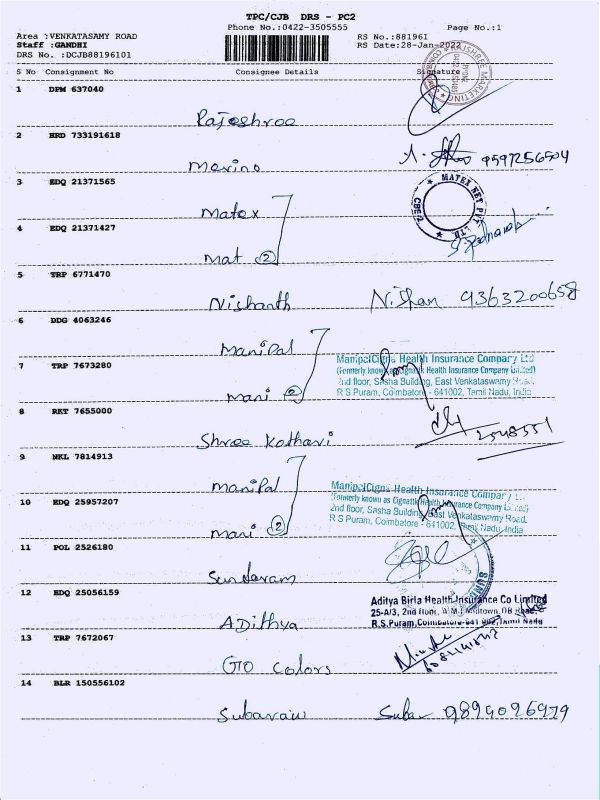 TPC/CJB DRS - PC2
Phone No.:0422-3505555 Page No.:1
Area :VENKATASAMY ROAD RS No.:881961
Staff :GANDHI RS Date:28-Jan-2022
DRS No. :DCJB88196101
S No Consignment No Consignee Details Signature
RAJSHREE MARKETING
1 DPM 637040
Rajeshree
2 HRD 733191618
Merino 9597256504
3 EDQ 21371565
MATEX NET PVT LTD.
CBE-2
Matex
4 EDQ 21371427
Mat (2)
5 TRP 6771470
Nishanth Nishan 9363200658
6 DDG 4063246
Manipal
7 TRP 7673280
ManipalCigna Health Insurance Company Ltd
(Formerly known as Cignattk Health Insurance Company Limited)
2nd floor, Sasha Building, East Venkataswamy Road,
R S Puram, Coimbatore - 641002, Tamil Nadu, India
Mani (2)
8 RKT 7655000
Shree Kothari 2548551
9 NKL 7814913
Manipal
ManipalCigna Health Insurance Company Ltd
(Formerly known as Cignattk Health Insurance Company Limited)
2nd floor, Sasha Building, East Venkataswamy Road,
R S Puram, Coimbatore - 641002, Tamil Nadu, India
10 EDQ 25957207
Mani (2)
11 POL 2526180
Sundaram
12 EDQ 25056159
Aditya Birla Health Insurance Co Limited
25-A/3, 2nd floor, Midtown, DB Road,
R.S.Puram, Coimbatore-641 002, Tamil Nadu
ADithya
13 TRP 7672067
GTO Colors
14 BLR 150556102
Subaraw Suba 9894096979